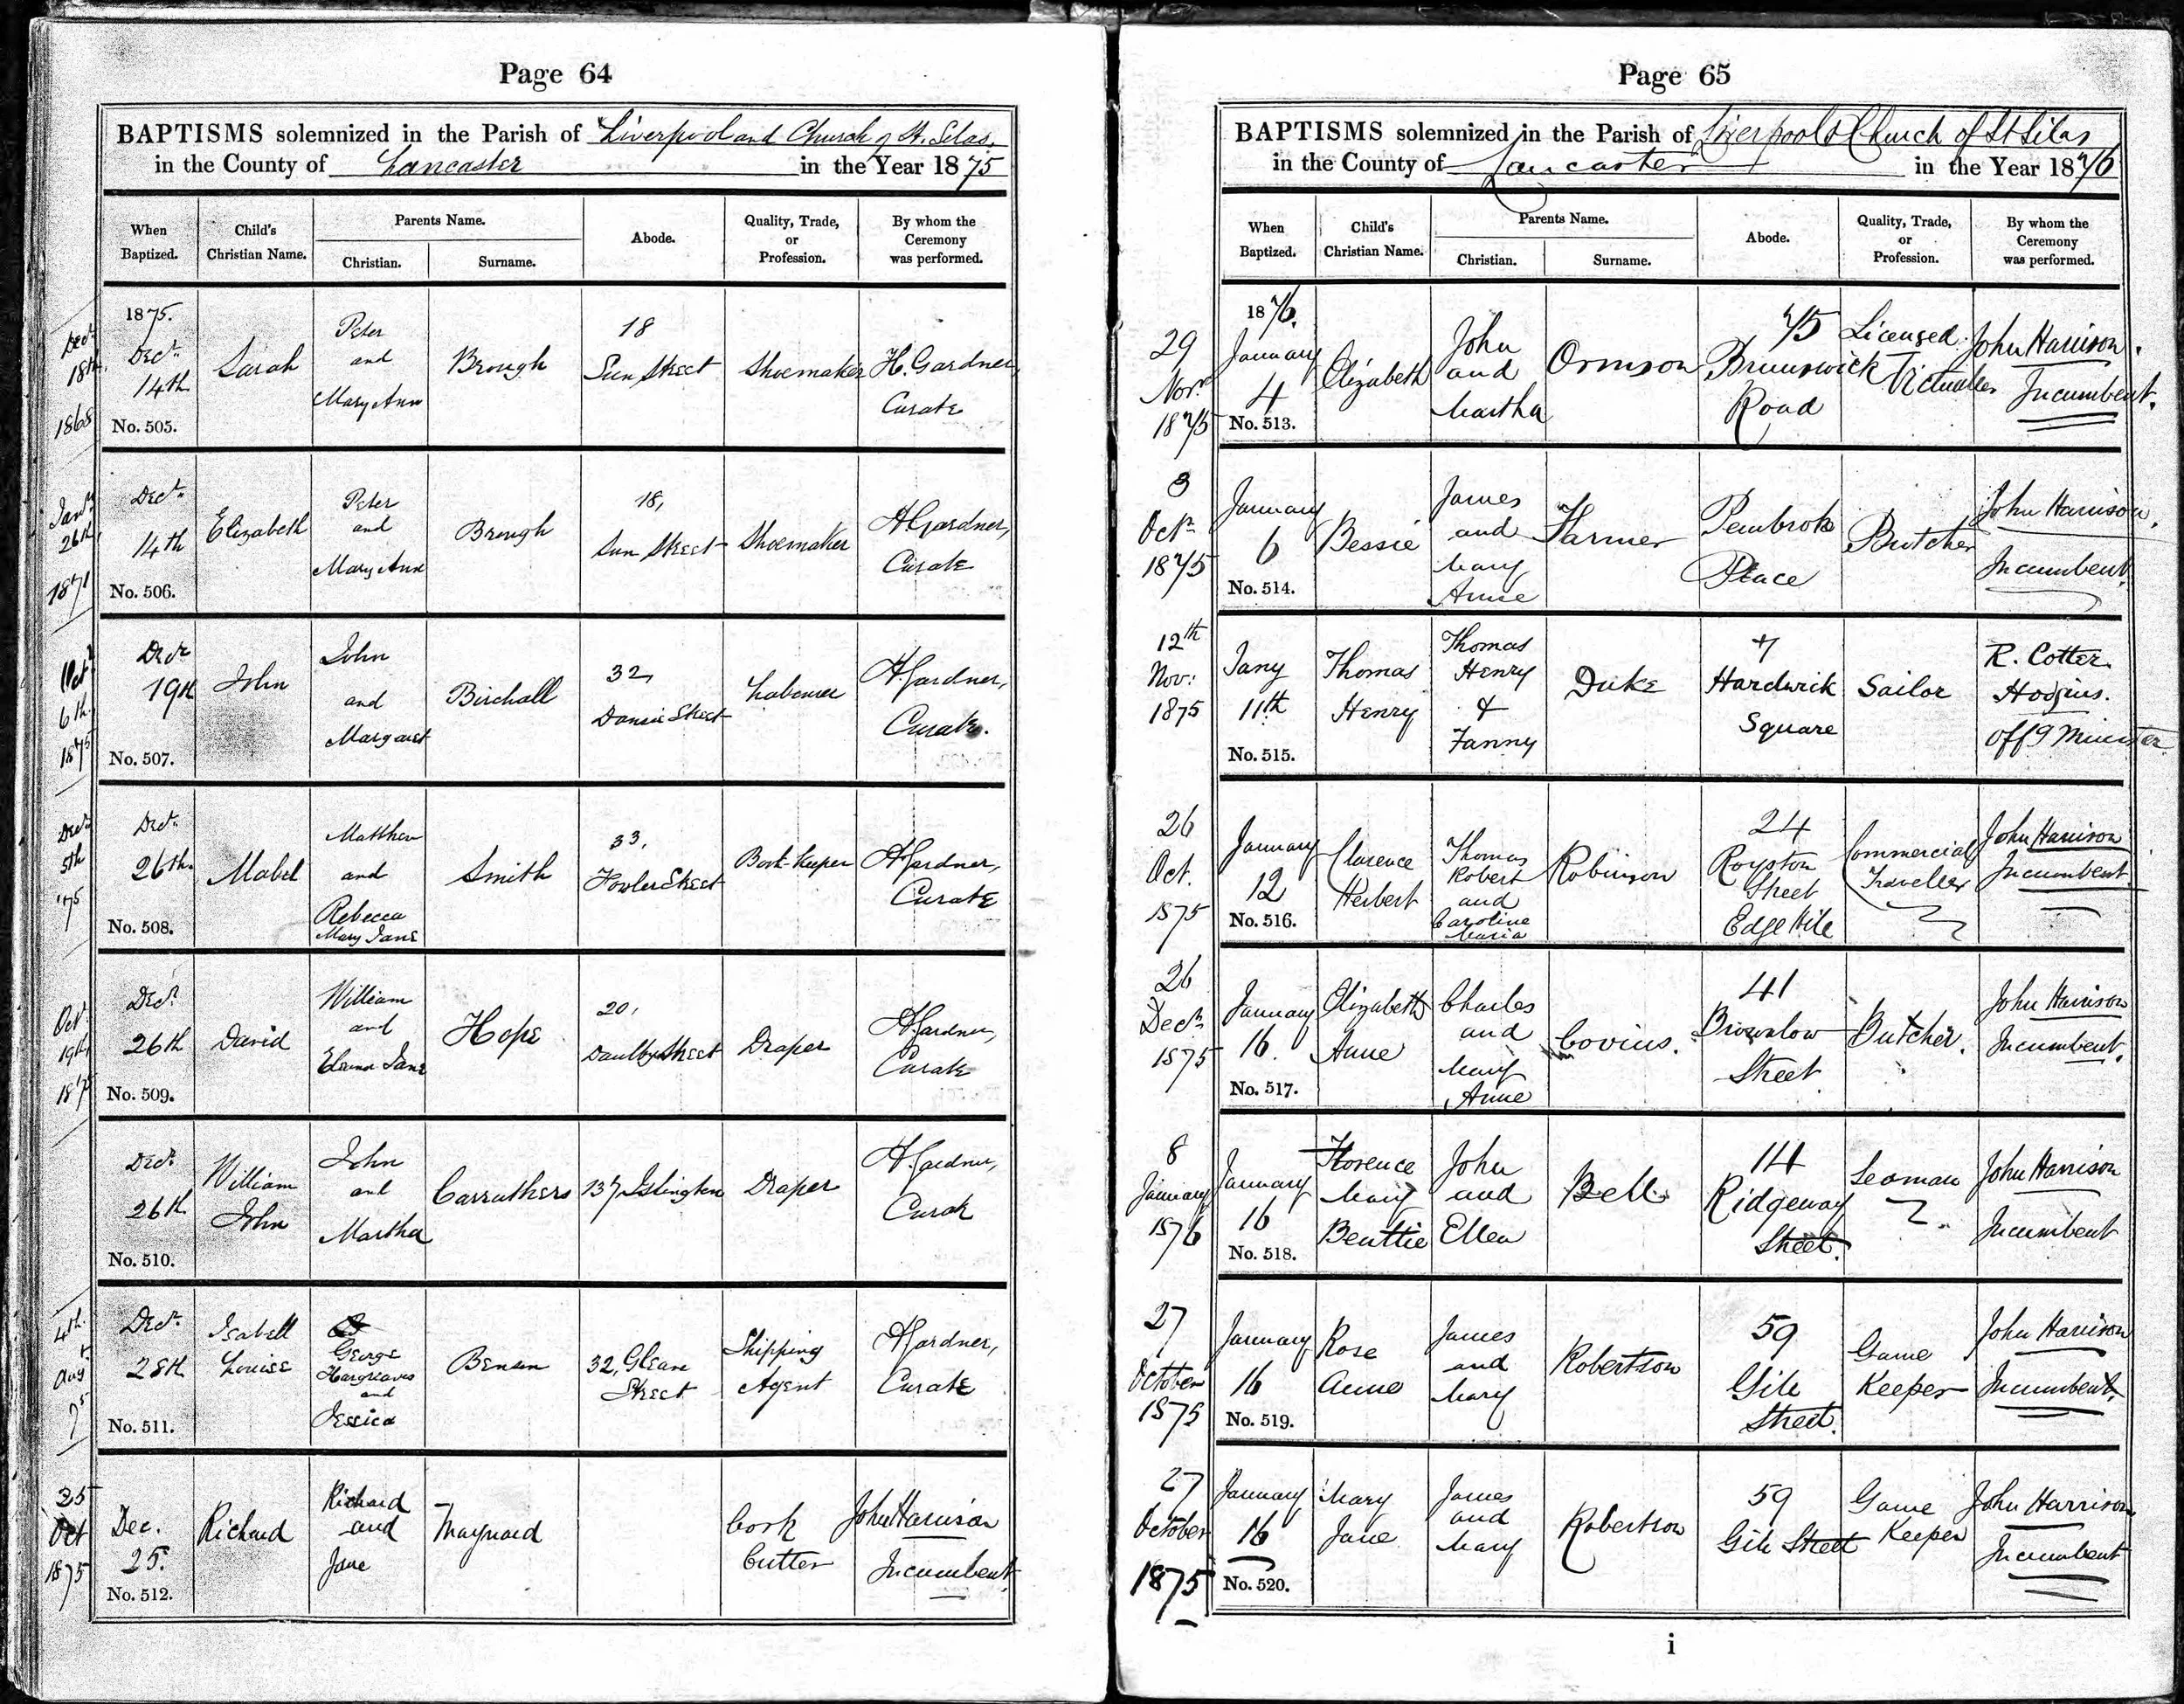 Page 64
BAPTISMS solemnized in the Parish of Liverpool and Church of St. Silas.
in the County of Lancaster in the Year 1875
When Baptized.
Child's Christian Name.
Parents Name.
Christian.
Surname.
Abode.
Quality, Trade, or Profession.
By whom the Ceremony was performed.
Decr. 18th. 1868
1875. Decr. 14th No. 505.
Sarah
Peter and Mary Ann
Brough
18 Sun Street
Shoemaker
H. Gardner, Curate
Jany. 26th, 1871
Decr. 14th No. 506.
Elizabeth
Peter and Mary Ann
Brough
18, Sun Street
Shoemaker
H Gardner, Curate
Octr 6th. 1875
Decr 19th No. 507.
John
John and Margaret
Birchall
32, Dansie Street
Labourer
H Gardner, Curate.
Decr 5th '75
Decr. 26th. No. 508.
Mabel
Matthew and Rebecca Mary Jane
Smith
33, Fowler Street
Book-keeper
H Gardner, Curate
Oct 19th, 1875
Decr 26th No. 509.
David
William and Eleanor Jane
Hope
20, Daulby Street
Draper
H Gardner, Curate
Decr. 26th No. 510.
William John
John and Martha
Carruthers
137 Islington
Draper
H Gardner, Curate
4th. Aug 75
Decr. 28th No. 511.
Isabell Louise
George Hargreaves and Jessica
Benson
32, Gleave Street
Shipping Agent
H Gardner, Curate
25 Oct 1875
Dec. 25. No. 512.
Richard
Richard and Jane
Maynard
Cork Cutter
John Harrison Incumbent
Page 65
BAPTISMS solemnized in the Parish of Liverpool & Church of St Silas
in the County of Lancaster in the Year 1876
When Baptized.
Child's Christian Name.
Parents Name.
Christian.
Surname.
Abode.
Quality, Trade, or Profession.
By whom the Ceremony was performed.
29 Novr 1875
1876. January 4 No. 513.
Elizabeth
John and Martha
Ormson
75 Brunswick Road
Licensed Victualler
John Harrison. Incumbent.
3 Octr 1875
January 6 No. 514.
Bessie
James and Mary Anne
Farmer
Pembroke Place
Butcher
John Harrison. Incumbent.
12th Nov: 1875
Jany 11th No. 515.
Thomas Henry
Thomas Henry & Fanny
Duke
7 Hardwick Square
Sailor
R. Cotter Hodgins. Offg Minister.
26 Oct. 1875
January 12 No. 516.
Clarence Herbert
Thomas Robert and Caroline Maria
Robinson
24 Royston Street Edge Hill
Commercial Traveller
John Harrison Incumbent
26 Decr 1875
January 16. No. 517.
Elizabeth Anne
Charles and Mary Anne
Covius.
41 Brownlow Street
Butcher.
John Harrison Incumbent.
8 January 1876
January 16 No. 518.
Florence Mary Beattie
John and Ellen
Bell
114 Ridgeway Street.
Seaman
John Harrison Incumbent
27 October 1875
January 16 No. 519.
Rose Anne
James and Mary
Robertson
59 Gill Street.
Game Keeper
John Harrison Incumbent.
27 October 1875
January 16 No. 520.
Mary Jane
James and Mary
Robertson
59 Gill Street
Game Keeper
John Harrison Incumbent
i